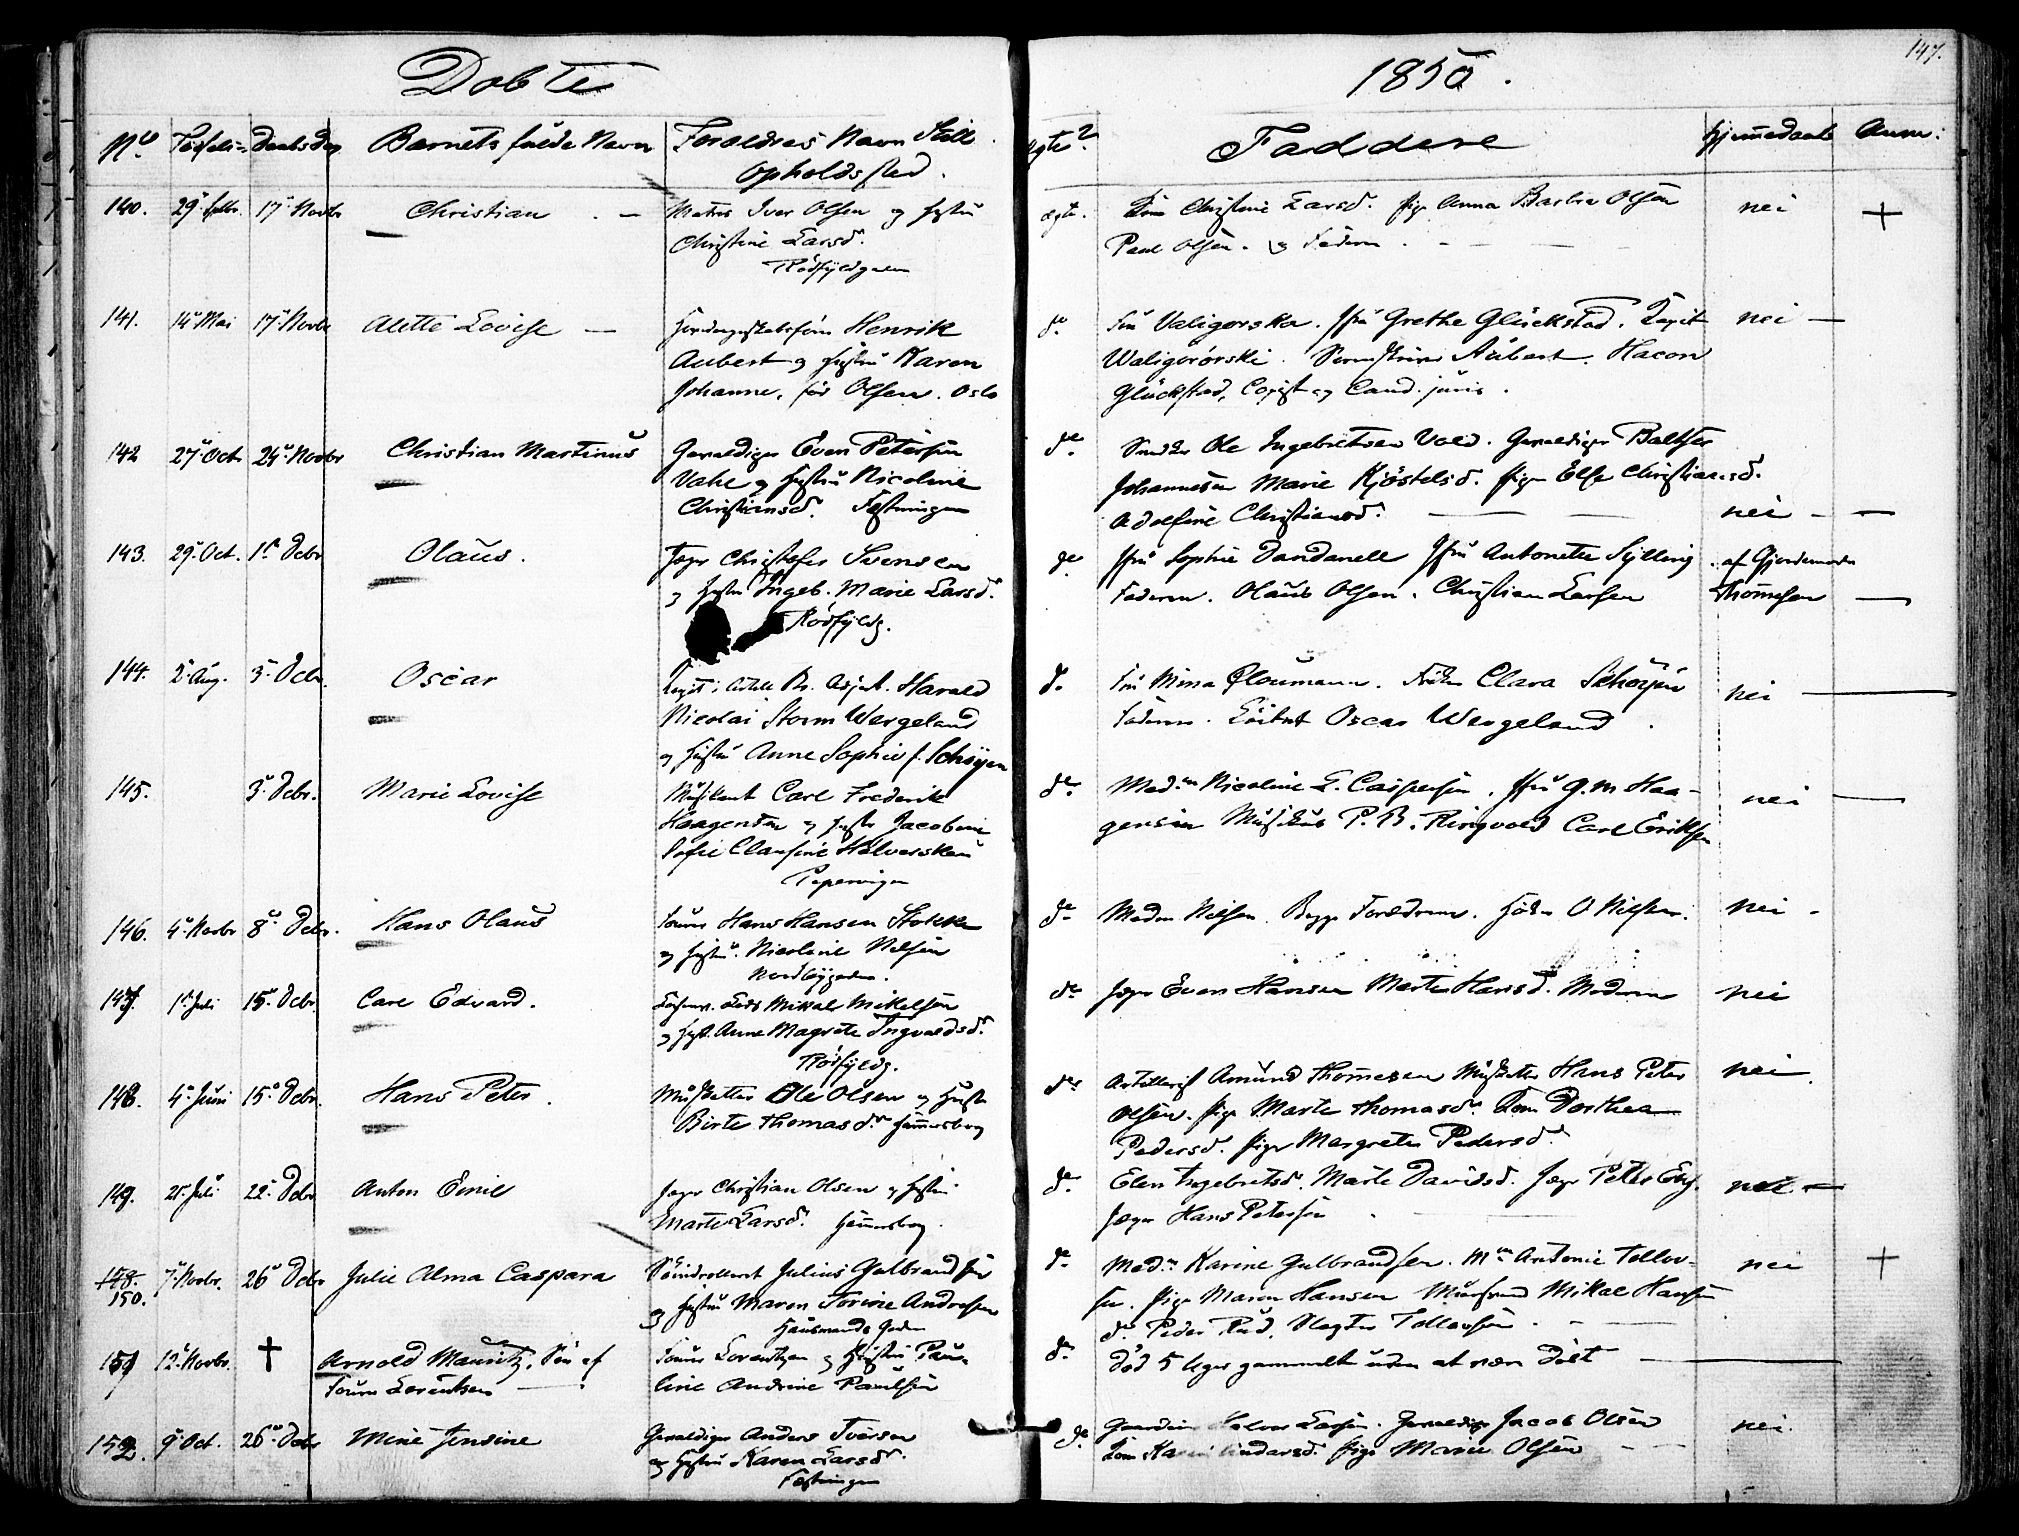 Døbte
1850.
147.
No
Barnets fulde Navn
Forældres Navn Still.
Opholdssted.
Faddere
Hjemmedøbt
Anm:
140. 29. Septbr. 17. Novbr Christian
Iver Olsen og Hustru
Christine Larsd.
ægte. Kone Christine Larsd. Pige Anna Barbra Olsen
Paul Olsen. og Faderen.
nei +
141. 14 Mai 17. Novbr Alette Lovise
Henrik
Aubert og Hustru Karen
Johanne, før Olsen. Oslo
do Fru Valigorska. Jfru Grethe Glückstad. Kapit
Waligorórski. Sorenskriver Aubert. Hacon
Glückstad, Copist og Cand. juris.
nei —
142 27. Oct. 24. Novbr Christian Martinus
Gevaldiger Even Petersen
Vahl og Hustru Nicoline
Christiansd. Fæstningen
do. Ole Ingebretsen Vold. Gevaldiger Baltser
Johannesen Marie Kjöstelsd. Pige Else Christiansd.
Adolfine Christiansd.
nei —
143. 29. Oct. 1. Debr Olaus.
Jæger Christofer Svensen
og Hustru Ingeb. Marie Larsd.
Rødfyldg.
do Jfru Sophie Dandanell Jfru Antonette Sylling
Faderen. Olaus Olsen. Christian Larsen
af Gjordemoder
Thomesen —
144. 2. Aug. 3. Debr. Oscar
Adjut. Harald
Nicolai Storm Wergeland
og Hustru Anne Sophie f. Schøyen
d. Fru Mina Ploumann. Frøken Clara Schøyen
Faderen. Løitnt Oscar Wergeland
nei —
145. 3. Debr. Marie Lovise
Musikant Carl Frederik
Haagensen og Hustru Jacobine
Sofie Clausine Halvorsken
Pipervigen
do. Madm Nicoline L. Caspersen. Jfru G. M Haa-
gensen Musikus P. B. Ringvold Carl Eriksen
nei —
146. 4. Novbr 8. Debr. Hans Olaus
Hans Hansen Stokke
og Hustru. Nicoline Nilsen
Nordbygaden.
do Madm Nilsen. Begge Forældrene. O Nilsen.
nei -
147. 1. Juli 15. Debr. Carl Edvard.
Mikal Mikelsen
og Hust. Anne Magrete Ingvaldsd.
Rødfyldg.
do Jæger Even Hansen Marte Hansd. Moderen
nei
148. 4. Juni 15. Debr. Hans Peter.
Musketter Ole Olsen og Hustr
Birte Thomasd. Hammersborg
do Artillerist Amund Thomesen Musketter Hans Peter
Olsen. Pige Marte Thomasd. Kone Dorthea
Pedersd. Pige Margrete Pedersd.
nei.
149. 21. Juli 22. Debr Anton Emil
Jæger Christian Olsen og Hustru
Marte Larsd. Hammersborg.
do. Elen Ingebretsd. Marte Davidsd. Jæger Peter
Jæger Hans Petersen
nei. —
148.
150. 7. Novbr. 26. Debr Julie Alma Caspara
Julius Gulbrandsen
og Hustru Maren Torine Andresen
Hausmands Gaden
do. Madm Karine Gulbrandsen. Mm Antonie Tellev-
sen. Pige Maren Hansen Mikal Hansen
do Peder Rud. Slagter Tollevsen.
nei +
151 12. Novbr. † Arnold Mauritz, Søn af
Lorentzen
Lorentzen og Hustru Pau-
line Andrine Paulsen
do Død 5 Uger gammelt uden at være døbt —
152. 9. Oct. 26. Debr Mine Jensine
Gevaldiger Anders Iversen
og Hustru Karen Larsd.
Fæstningen
do Halvor Larsen. Gevaldiger Jacob Olsen
Kone Karen Pige Marie Olsen
nei.